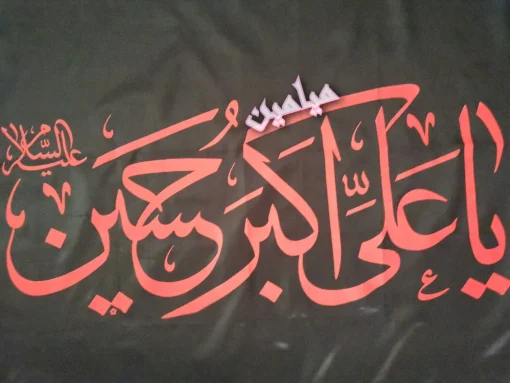 میلمین
یا علی اکبر حسین
علیه السلام